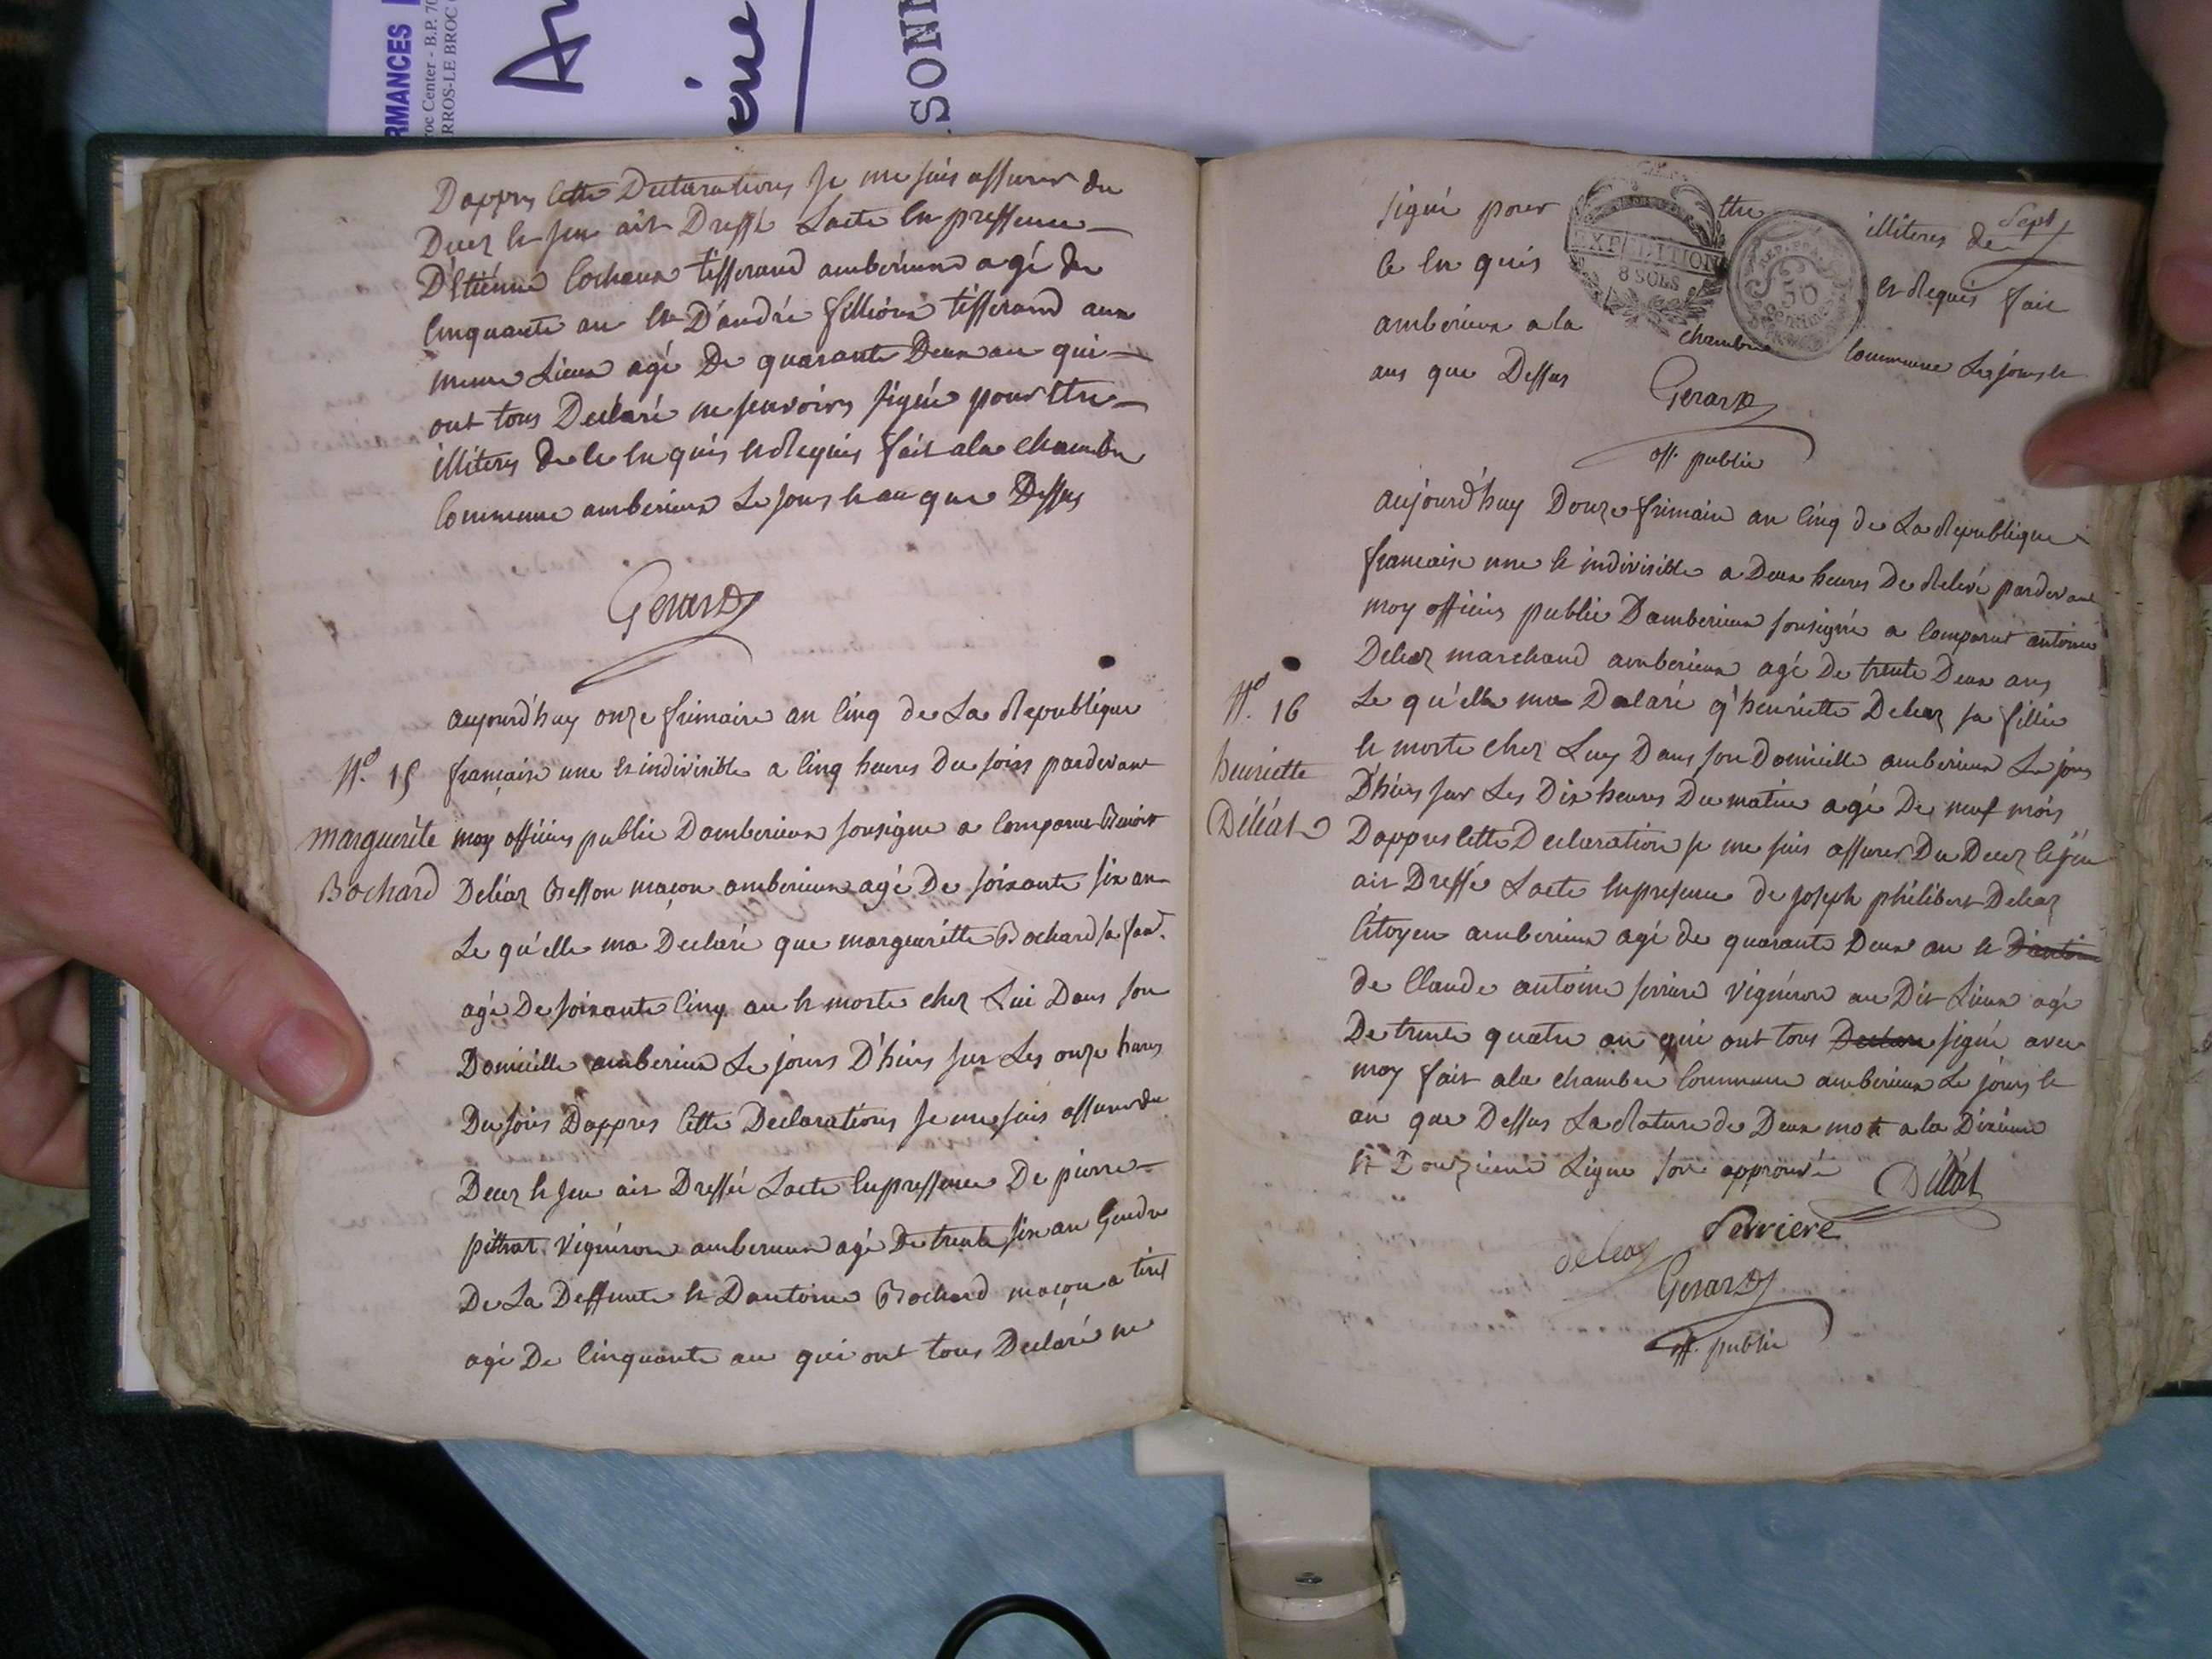 RMANCES
roc Center - B.P. 70
RROS-LE BROC
SONN
Dappres cette Declarations Je me suis assurer du
Decez et Jen ait Dressé Lacte En pressence
D'Etiénne Cochaux tisserand amberieux agé de
Cinquante an et D'andré fillioux tisserand aux
meme Lieux agé De quarante Deux an qui
ont tous Declaré ne scavoirs signé pour Etre
illiteres de ce En quis et Requis fait a la chambre
Commune amberieux Le Jours et an que Dessus
Gerard
aujourd'huy onze frimaire an Cinq de La Republique
Nº. 15 française une et indivisible a Cinq heures Du soirs pardevant
marguerite moy officies public Damberieux sousigné a Comparus Benoit
Bochard Deléaz Besson maçon amberieux agé De soixante six an
Le qu'elle ma Declaré que margueritte Bochard sa fam.
agé De soixante Cinq an et morte chez Lui Dans son
Domicille amberieux Le jours D'hiers sur Les onze hures
Du soirs Dappres Cette Declarations Je me suis assurer du
Decez et Jen ait Dressé Lacte En pressence De pierre
pittrat vignéron amberieux agé De trente six an Gendre
De La Deffunte et Dantoine Bochard maçon a
agé De Cinquante an qui ont tous Declaré ne
signé pour Etre illiteres de Sept
ce En quis EXPEDITION 8 SOLS REP. FRA. 50 Centimes et Requis fait
amberieux a la chambre Commune Les jours et
ans que Dessus
Gerard
off. public
aujourd'huy Douze frimaire an Cinq de La Republique
francaise une et indivisible a Deux heures De Relevé pardevant
moy officies public Damberieux sousigné a Comparut antoine
Deleaz marchand amberieux agé De trente Deux ans
Nº. 16 Le qu'elle ma Dalaré q'henriette Deleaz sa fillie
henriette et morte chez Luy Dans son Domicille amberieux Le jours
Déléat D'hiers sur Les Dix heures Du matin agé De neuf mois
Dappres Cette Declaration Je me suis assurer Du Decez et Jen
ait Dressé Lacte En presence de Joseph philibert Deleaz
Citoyen amberieux agé de quarante Deux an et Dantoine
de Claude antoine ferriere vignéron au Dit Lieux agé
De trente quatre an qui ont tous Declare signé avec
moy fait a la chambre Commune amberieux Le jours et
an que Dessus La Rature de Deux mots a la Dixieme
et Douzieme Ligne son approuvé Déléat
ferriere
deleaz
Gerard
off. public